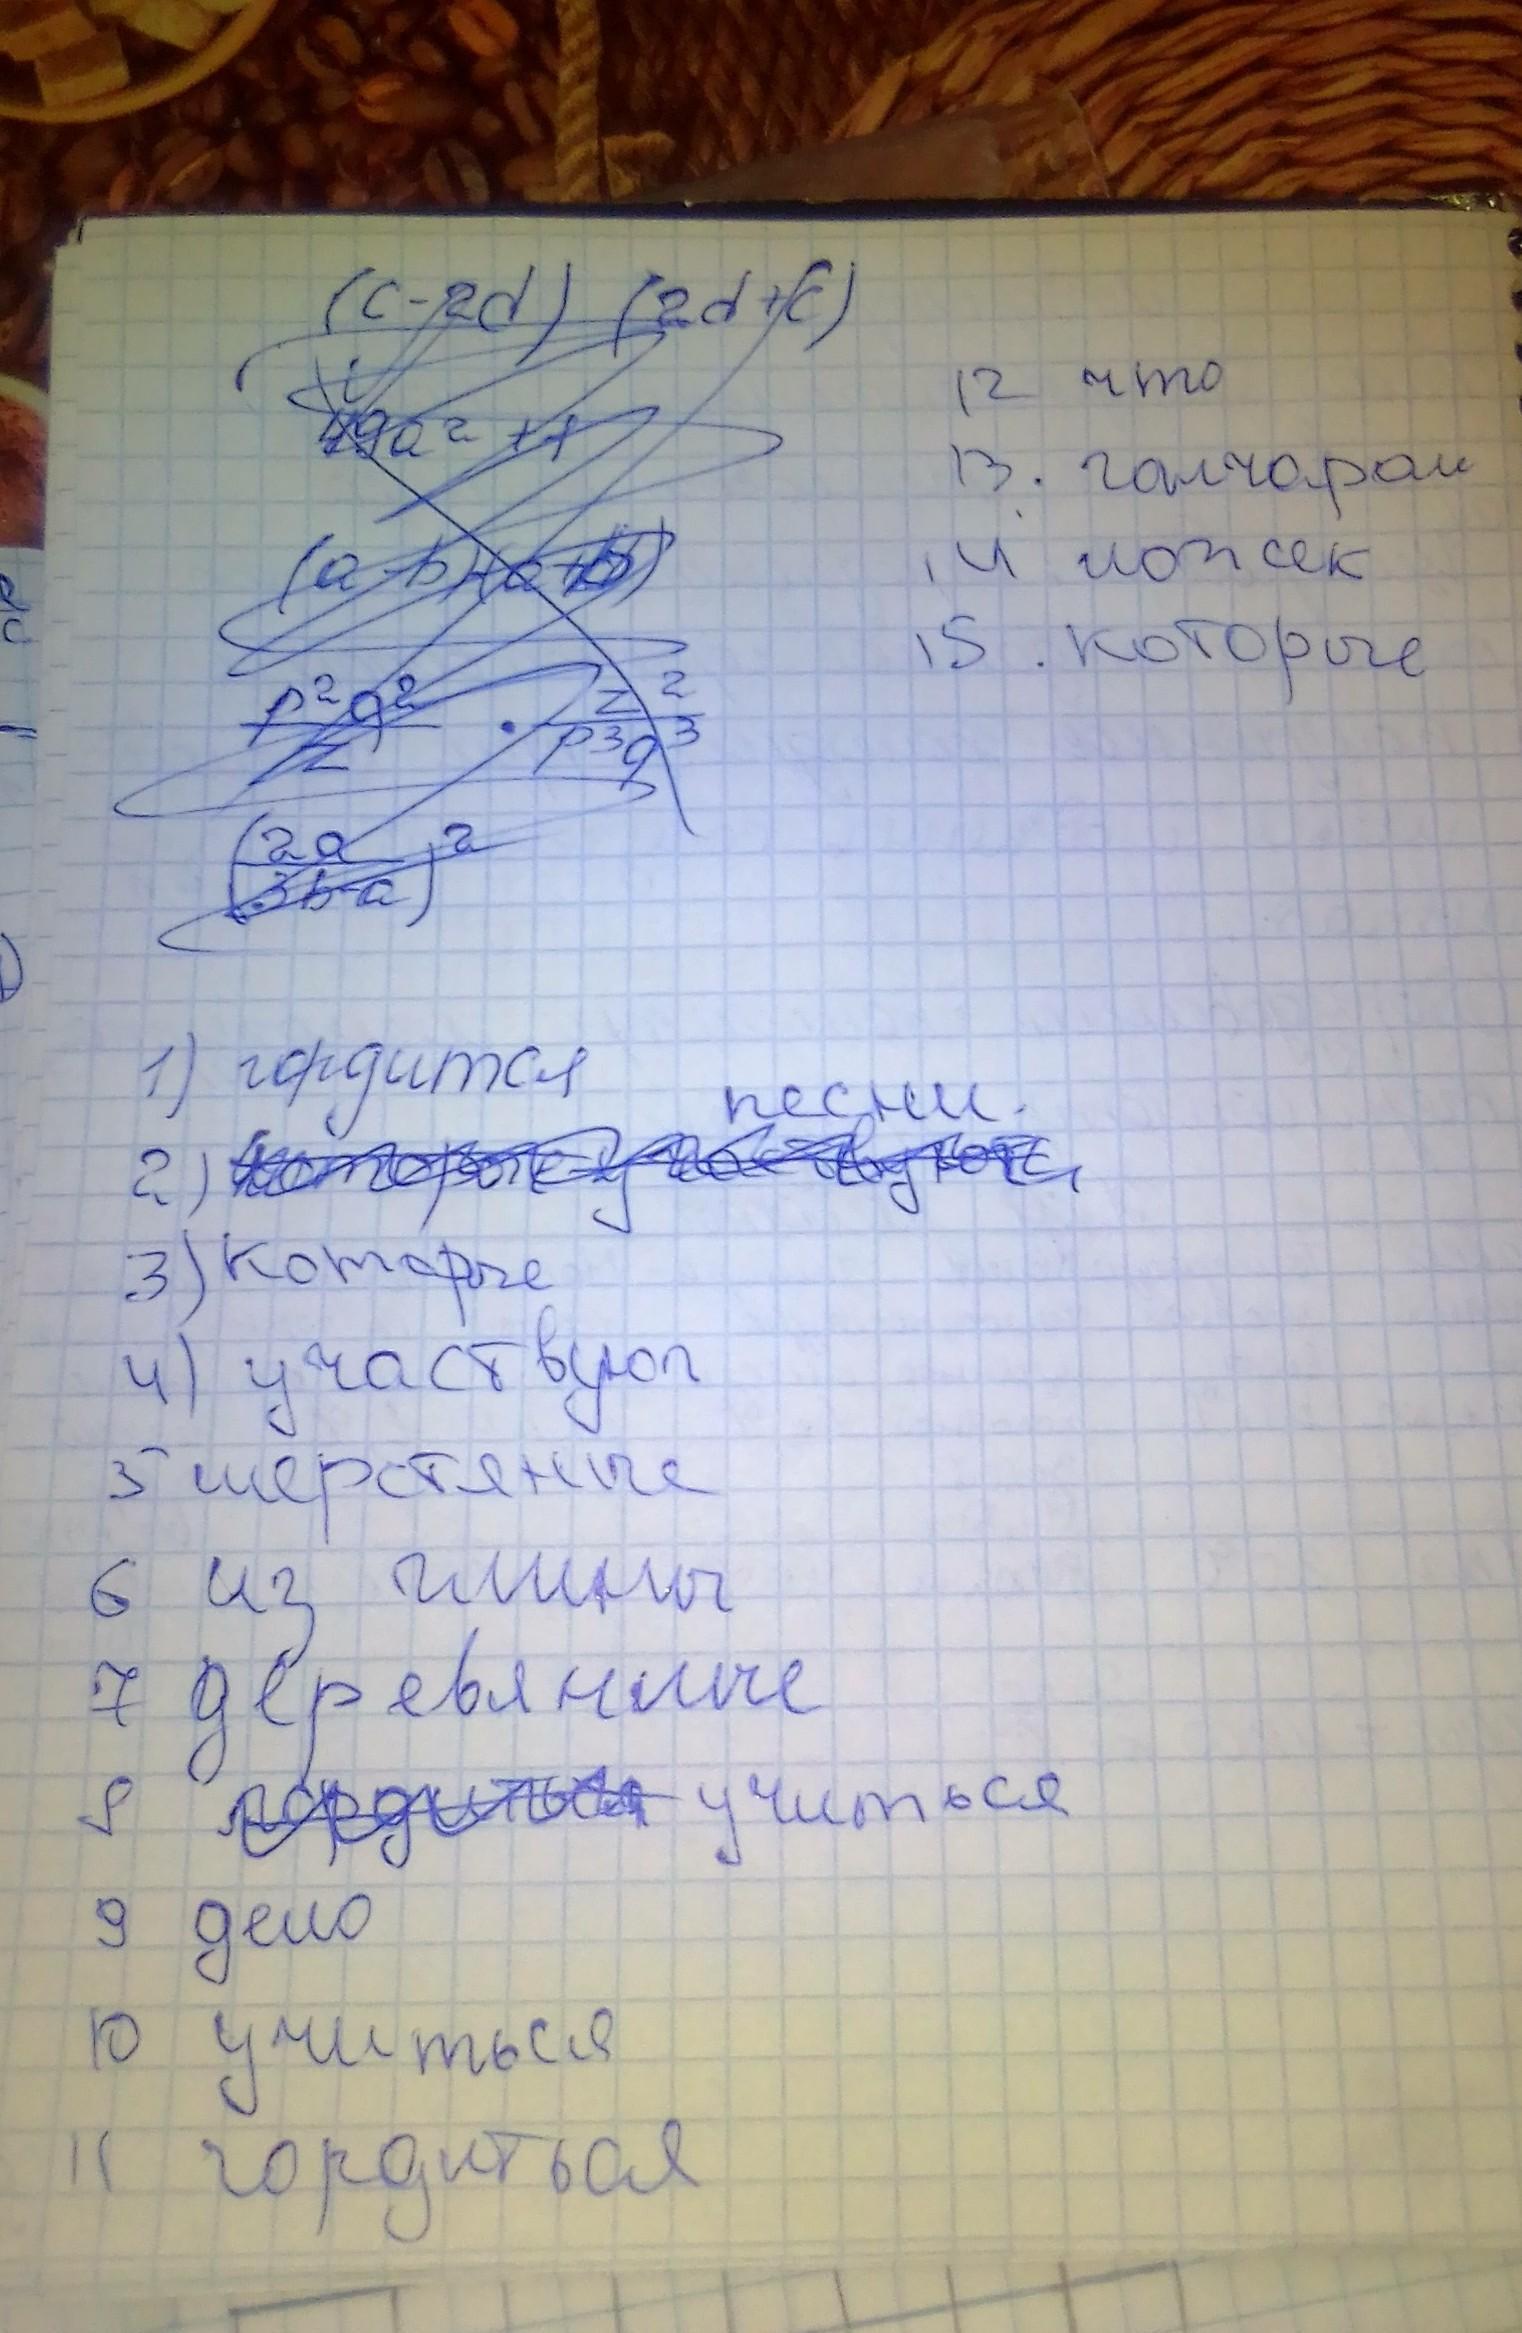 (c-2d) (2d+c)
49a² + 1
(a-b)(a+b)
p²q²/z · z²/p³q³
(2a/3b-a)²
12 что
13. гончарам
14 ложек
15. которые
1) гордится
песни.
2) которые участвуют
3) которые
4) участвуют
5 шерстяные
6 из глины
7 деревянные
8 гордиться учиться
9 дело
10 учиться
11 гордиться